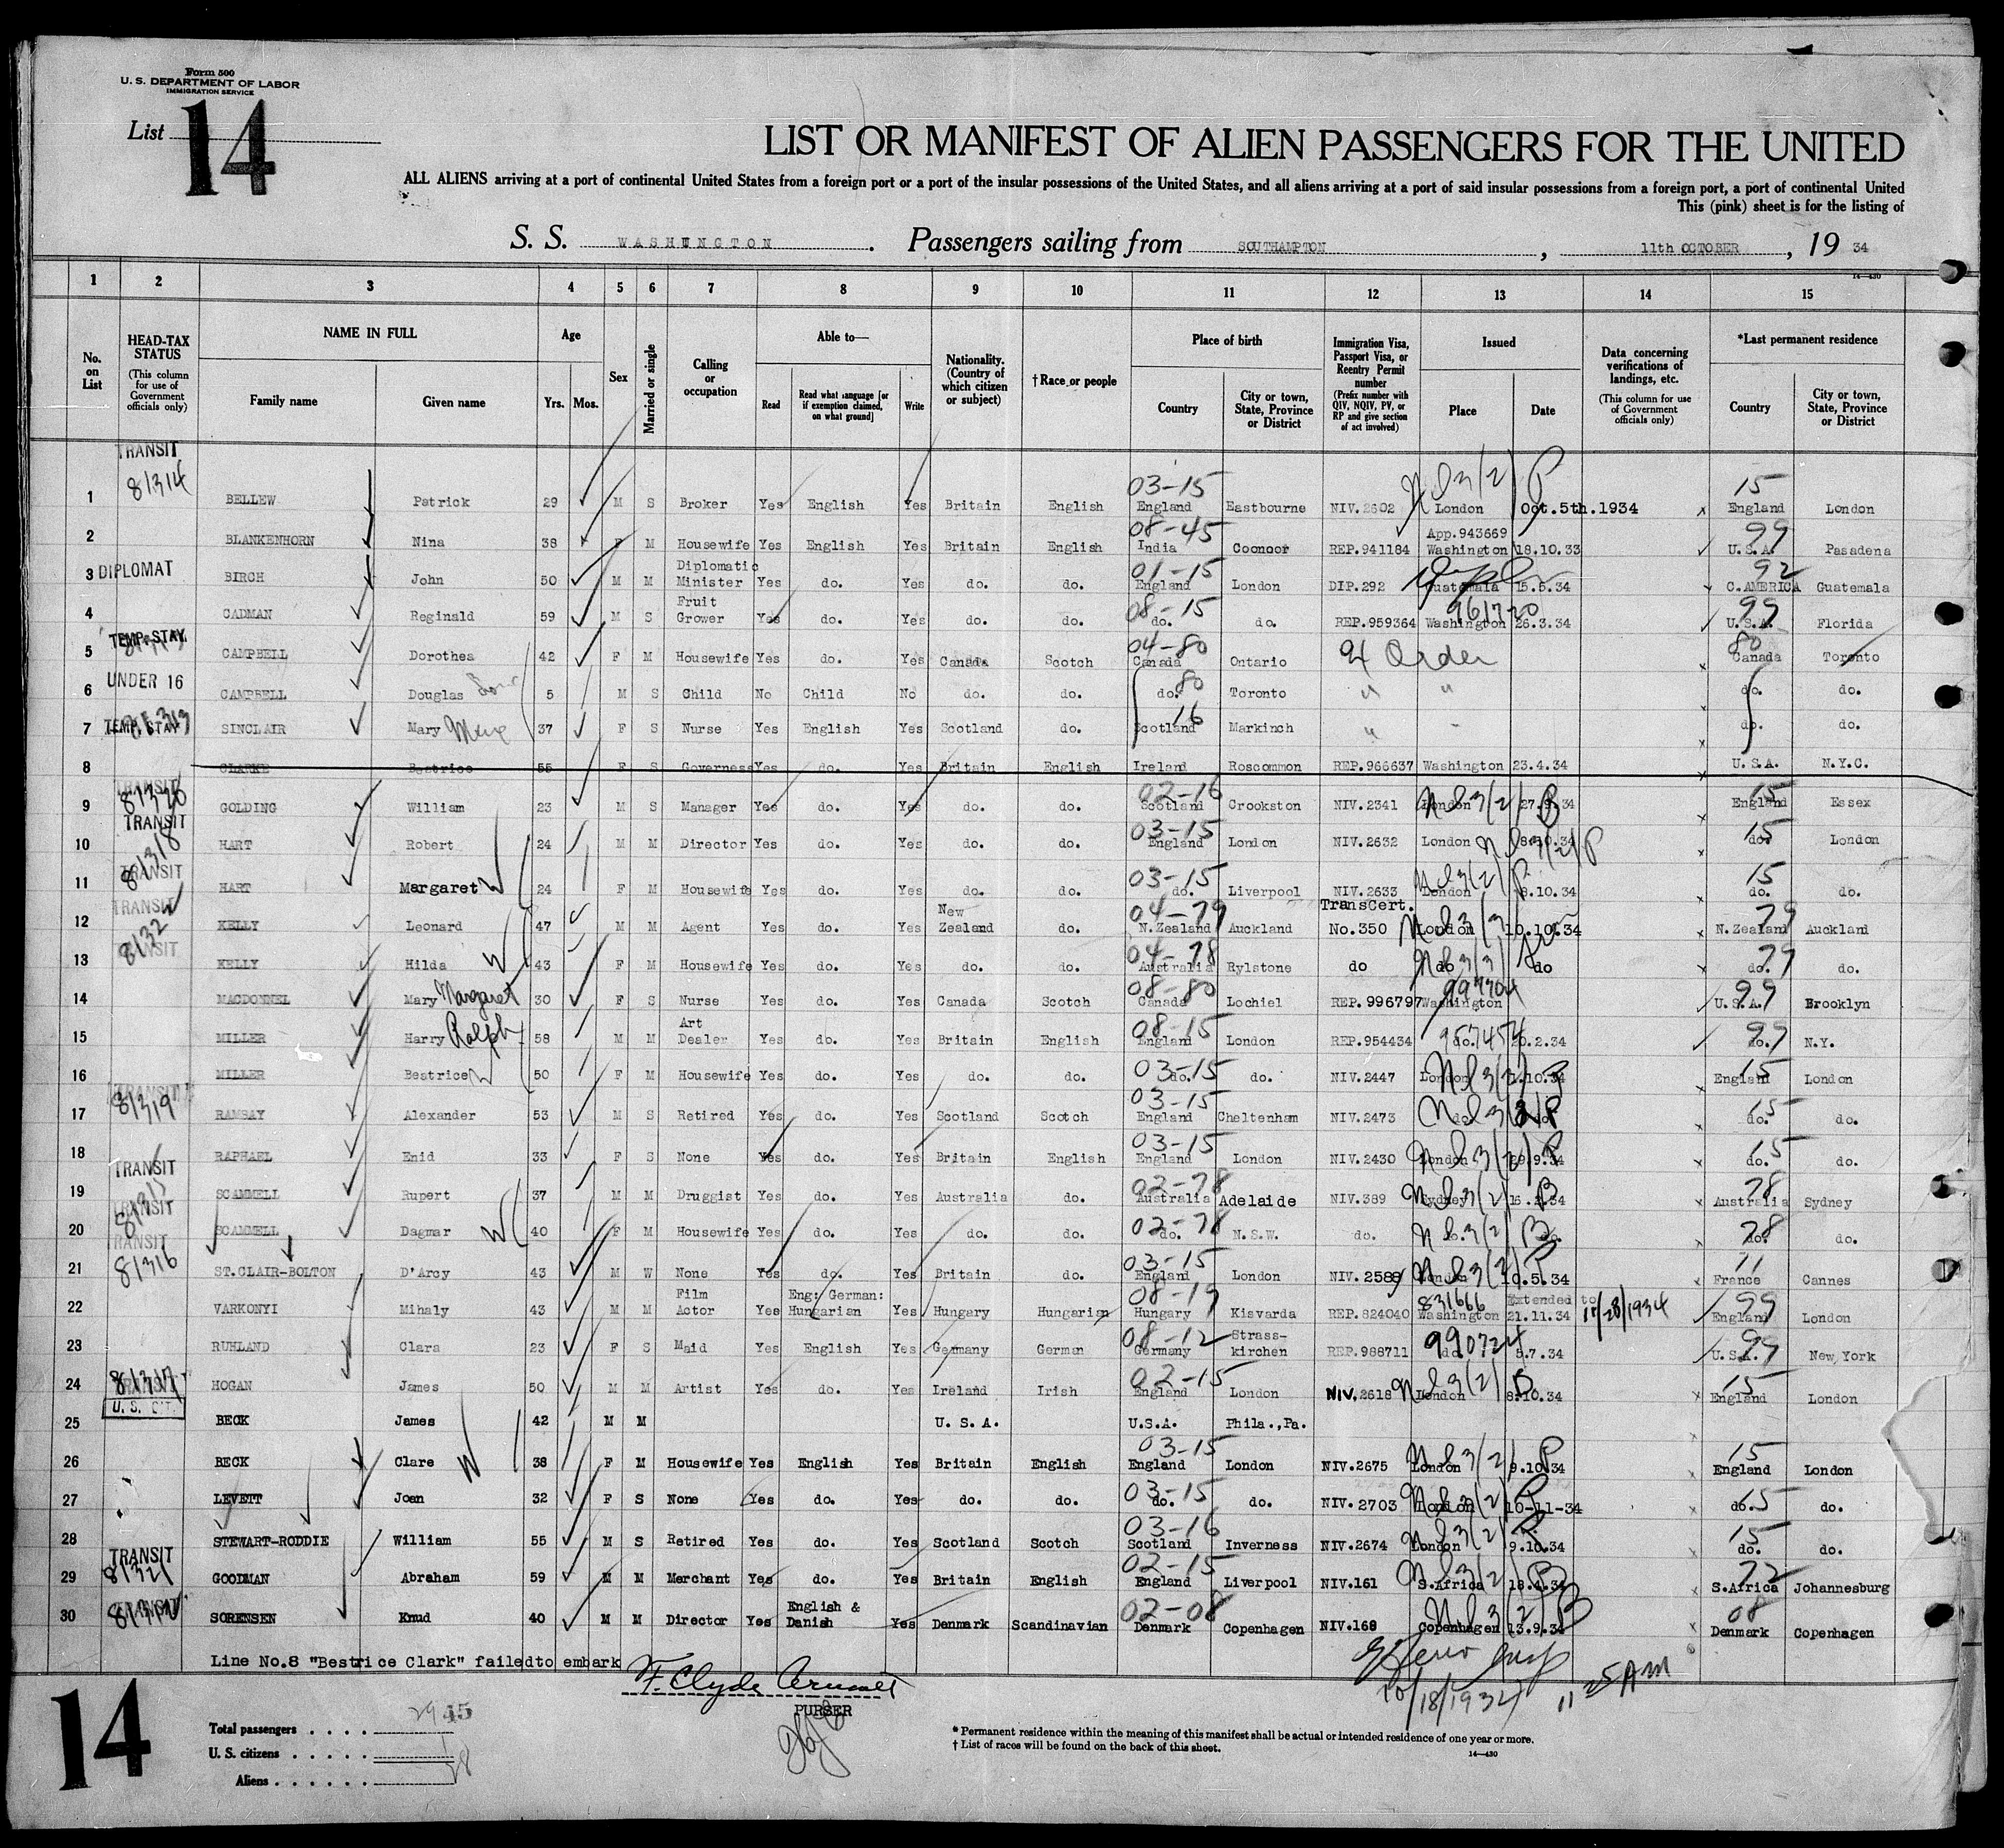 Form 500
U. S. DEPARTMENT OF LABOR
IMMIGRATION SERVICE
List 14
LIST OR MANIFEST OF ALIEN PASSENGERS FOR THE UNITED
ALL ALIENS arriving at a port of continental United States from a foreign port or a port of the insular possessions of the United States, and all aliens arriving at a port of said insular possessions from a foreign port, a port of continental United
This (pink) sheet is for the listing of
S. S. WASHINGTON. Passengers sailing from SOUTHAMPTON, 11th OCTOBER, 19 34
14—430
1 2 3 4 5 6 7 8 9 10 11 12 13 14 15
No. on List
HEAD-TAX STATUS (This column for use of Government officials only)
NAME IN FULL Family name Given name
Age Yrs. Mos.
Sex
Married or single
Calling or occupation
Able to— Read Read what language [or if exemption claimed, on what ground] Write
Nationality. (Country of which citizen or subject)
† Race or people
Place of birth Country City or town, State, Province or District
Immigration Visa, Passport Visa, or Reentry Permit number (Prefix number with QIV, NQIV, PV, or RP and give section of act involved)
Issued Place Date
Data concerning verifications of landings, etc. (This column for use of Government officials only)
*Last permanent residence Country City or town, State, Province or District
TRANSIT 81314 03-15 15
1 BELLEW Patrick 29 M S Broker Yes English Yes Britain English England Eastbourne NIV.2602 London Oct.5th.1934 England London
08-45 App.943669 99
2 BLANKENHORN Nina 38 F M Housewife Yes English Yes Britain English India Coonoor REP.941184 Washington 18.10.33 U.S.A. Pasadena
01-15 92
3 DIPLOMAT BIRCH John 50 M M Diplomatic Minister Yes do. Yes do. do. England London DIP.292 Guatemala 15.5.34 C.AMERICA Guatemala
08-15 961720 99
4 CADMAN Reginald 59 M S Fruit Grower Yes do. Yes do. do. do. do. REP.959364 Washington 26.3.34 U.S.A. Florida
TEMP. STAY 04-80 80
5 CAMPBELL Dorothea 42 F M Housewife Yes do. Yes Canada Scotch Canada Ontario Order Canada Toronto
UNDER 16 80
6 CAMPBELL Douglas 5 M S Child No Child No do. do. do. Toronto " " do. do.
TEMP. STAY 16
7 SINCLAIR Mary 37 F S Nurse Yes English Yes Scotland do. Scotland Markinch " " do. do.
8 CLARKE Beatrice 55 F S Governess Yes do. Yes Britain English Ireland Roscommon REP.966637 Washington 23.4.34 U.S.A. N.Y.C.
TRANSIT 81320 02-16 15
9 GOLDING William 23 M S Manager Yes do. Yes do. do. Scotland Crookston NIV.2341 London 27.9.34 England Essex
TRANSIT 81318 03-15 15
10 HART Robert 24 M M Director Yes do. Yes do. do. England London NIV.2632 London 8.10.34 do. London
TRANSIT 03-15 15
11 HART Margaret 24 F M Housewife Yes do. Yes do. do. do. Liverpool NIV.2633 London 8.10.34 do. do.
TRANSIT 04-79 79
12 KELLY Leonard 47 M M Agent Yes do. Yes New Zealand do. N.Zealand Auckland TransCert. No.350 London 10.10.34 N.Zealand Auckland
TRANSIT 04-78 79
13 KELLY Hilda 43 F M Housewife Yes do. Yes do. do. Australia Rylstone do do do do. do.
08-80 997704 99
14 MACDONNEL Mary Margaret 30 F S Nurse Yes do. Yes Canada Scotch Canada Lochiel REP.996797 Washington U.S.A. Brooklyn
08-15 957454 99
15 MILLER Harry Ralph 58 M M Art Dealer Yes do. Yes Britain English England London REP.954434 do. 20.2.34 do. N.Y.
03-15 15
16 MILLER Beatrice 50 F M Housewife Yes do. Yes do. do. do. do. NIV.2447 London 1.10.34 England London
TRANSIT 81319 03-15 15
17 RAMSAY Alexander 53 M S Retired Yes do. Yes Scotland Scotch England Cheltenham NIV.2473 do. do. do. do.
03-15 15
18 RAPHAEL Enid 33 F S None Yes do. Yes Britain English England London NIV.2430 London 9.34 do. do.
TRANSIT 02-78 78
19 SCAMMELL Rupert 37 M M Druggist Yes do. Yes Australia do. Australia Adelaide NIV.389 Sydney 34 Australia Sydney
TRANSIT 02-78 78
20 SCAMMELL Dagmar 40 F M Housewife Yes do. Yes do. do. do. N.S.W. do. do. do. do. do.
TRANSIT 81316 03-15 11
21 ST.CLAIR-BOLTON D'Arcy 43 M W None Yes do. Yes Britain do. England London NIV.2588 London 5.34 France Cannes
08-19 831666 Extended to 11/28/1934 99
22 VARKONYI Mihaly 43 M M Film Actor Yes Eng: German: Hungarian Yes Hungary Hungarian Hungary Kisvarda REP.824040 Washington 21.11.34 England London
08-12 990724 99
23 RUHLAND Clara 23 F S Maid Yes English Yes Germany German Germany Strass-kirchen REP.988711 do. 5.7.34 U.S.A. New York
81317 TRANSIT 02-15 15
24 HOGAN James 50 M M Artist Yes do. Yes Ireland Irish England London NIV.2618 London 8.10.34 England London
U. S. CIT.
25 BECK James 42 M M U. S. A. U.S.A. Phila.,Pa.
03-15 15
26 BECK Clare 38 F M Housewife Yes English Yes Britain English England London NIV.2675 London 9.10.34 England London
03-15 15
27 LEVETT Joan 32 F S None Yes do. Yes do. do. do. do. NIV.2703 London 10-11-34 do. do.
03-16 15
28 STEWART-RODDIE William 55 M S Retired Yes do. Yes Scotland Scotch Scotland Inverness NIV.2674 London 9.10.34 do. do.
TRANSIT 81321 02-15 72
29 GOODMAN Abraham 59 M M Merchant Yes do. Yes Britain English England Liverpool NIV.161 S.Africa 18.4.34 S.Africa Johannesburg
02-08 08
30 SORENSEN Knud 40 M M Director Yes English & Danish Yes Denmark Scandinavian Denmark Copenhagen NIV.168 Copenhagen 13.9.34 Denmark Copenhagen
Line No.8 "Beatrice Clark" failedto embark
F. Clyde
PURSER
10/18/1934 11 25 AM
14
Total passengers . . . . 29 45
U. S. citizens . . . . . 1
Aliens . . . . . . 28
* Permanent residence within the meaning of this manifest shall be actual or intended residence of one year or more.
† List of races will be found on the back of this sheet.
14—430